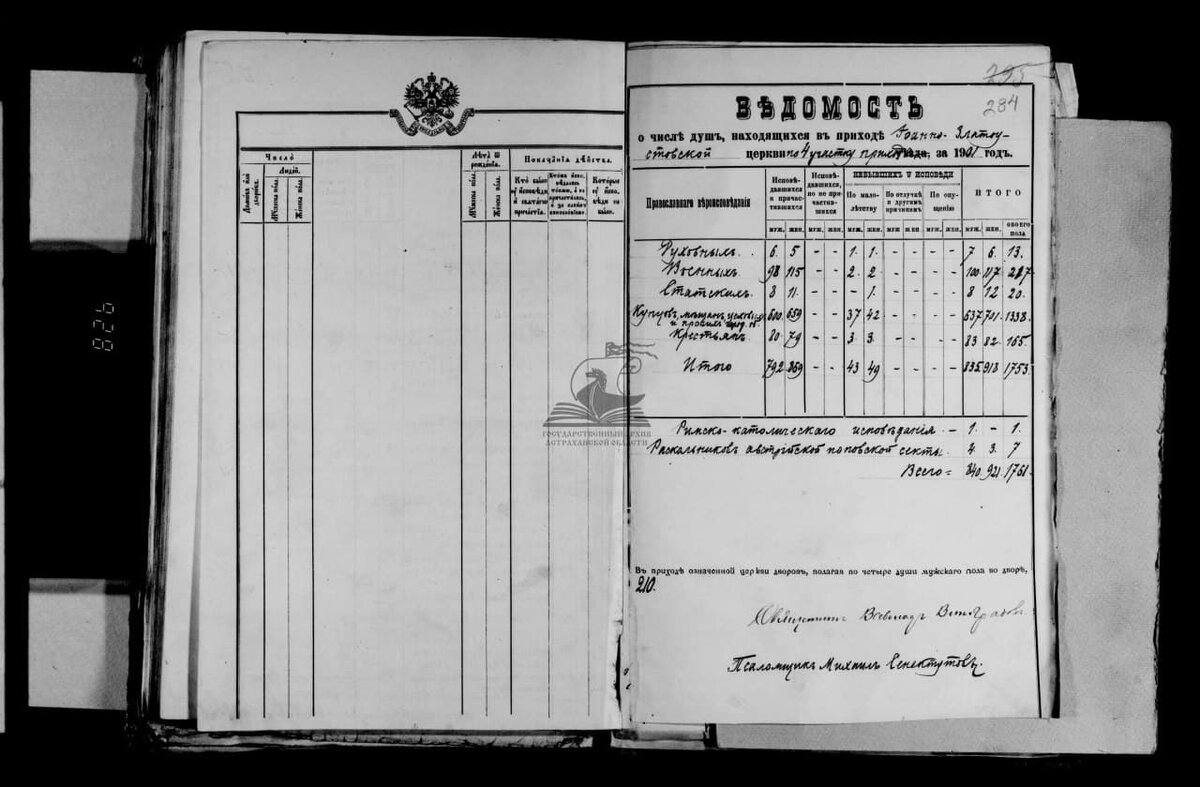 Число
Людей.
Домовъ или дворовъ.
Мужска пола.
Женска пола.
Лѣта ѿ рожденiя.
Мужска пола.
Женска пола.
Показанiе дѣйства.
Которые
928
ГОСУДАРСТВЕННЫЙ АРХИВ
АСТРАХАНСКОЙ ОБЛАСТИ
295
284
ВѢДОМОСТЬ
о числѣ душъ, находящихся въ приходѣ Iоанно-Златоу-
стовской церкви по 4 участку за 1901 годъ.
Православнаго вѣроисповѣданiя
Исповѣдавшихся и причастившихся
Исповѣдавшихся, но не причастившихся
НЕБЫВШИХЪ У ИСПОВѢДИ
По малолѣтству
По отлучкѣ и другимъ причинамъ
По опущенiю
ИТОГО
муж. жен. муж. жен. муж. жен. муж. жен. муж. жен. муж. жен. обоего пола
Духовныхъ. 6. 5 - - 1. 1. - - - - 7 6. 13.
Военныхъ 98 115 - - 2. 2. - - - - 100 117 217.
Статскихъ. 8 11. - - - 1. - - - - 8 12 20.
Купцовъ, мѣщанъ, цеховыхъ 600 659 - - 37 42 - - - - 637 701 1338.
и прочихъ город. об.
Крестьянъ 80 79 - - 3 3. - - - - 83 82. 165.
Итого 792 869 - - 43 49 - - - - 835 918 1753.
Римско-католическаго исповѣданiя. - 1. - 1.
Раскольниковъ австрiйской поповской секты. 4. 3. 7
Всего = 840. 921. 1761.
Въ приходѣ означенной церкви дворовъ, полагая по четыре души мужскаго пола во дворѣ,
210.
Священникъ Всеволодъ Виноградовъ
Псаломщикъ Михаилъ